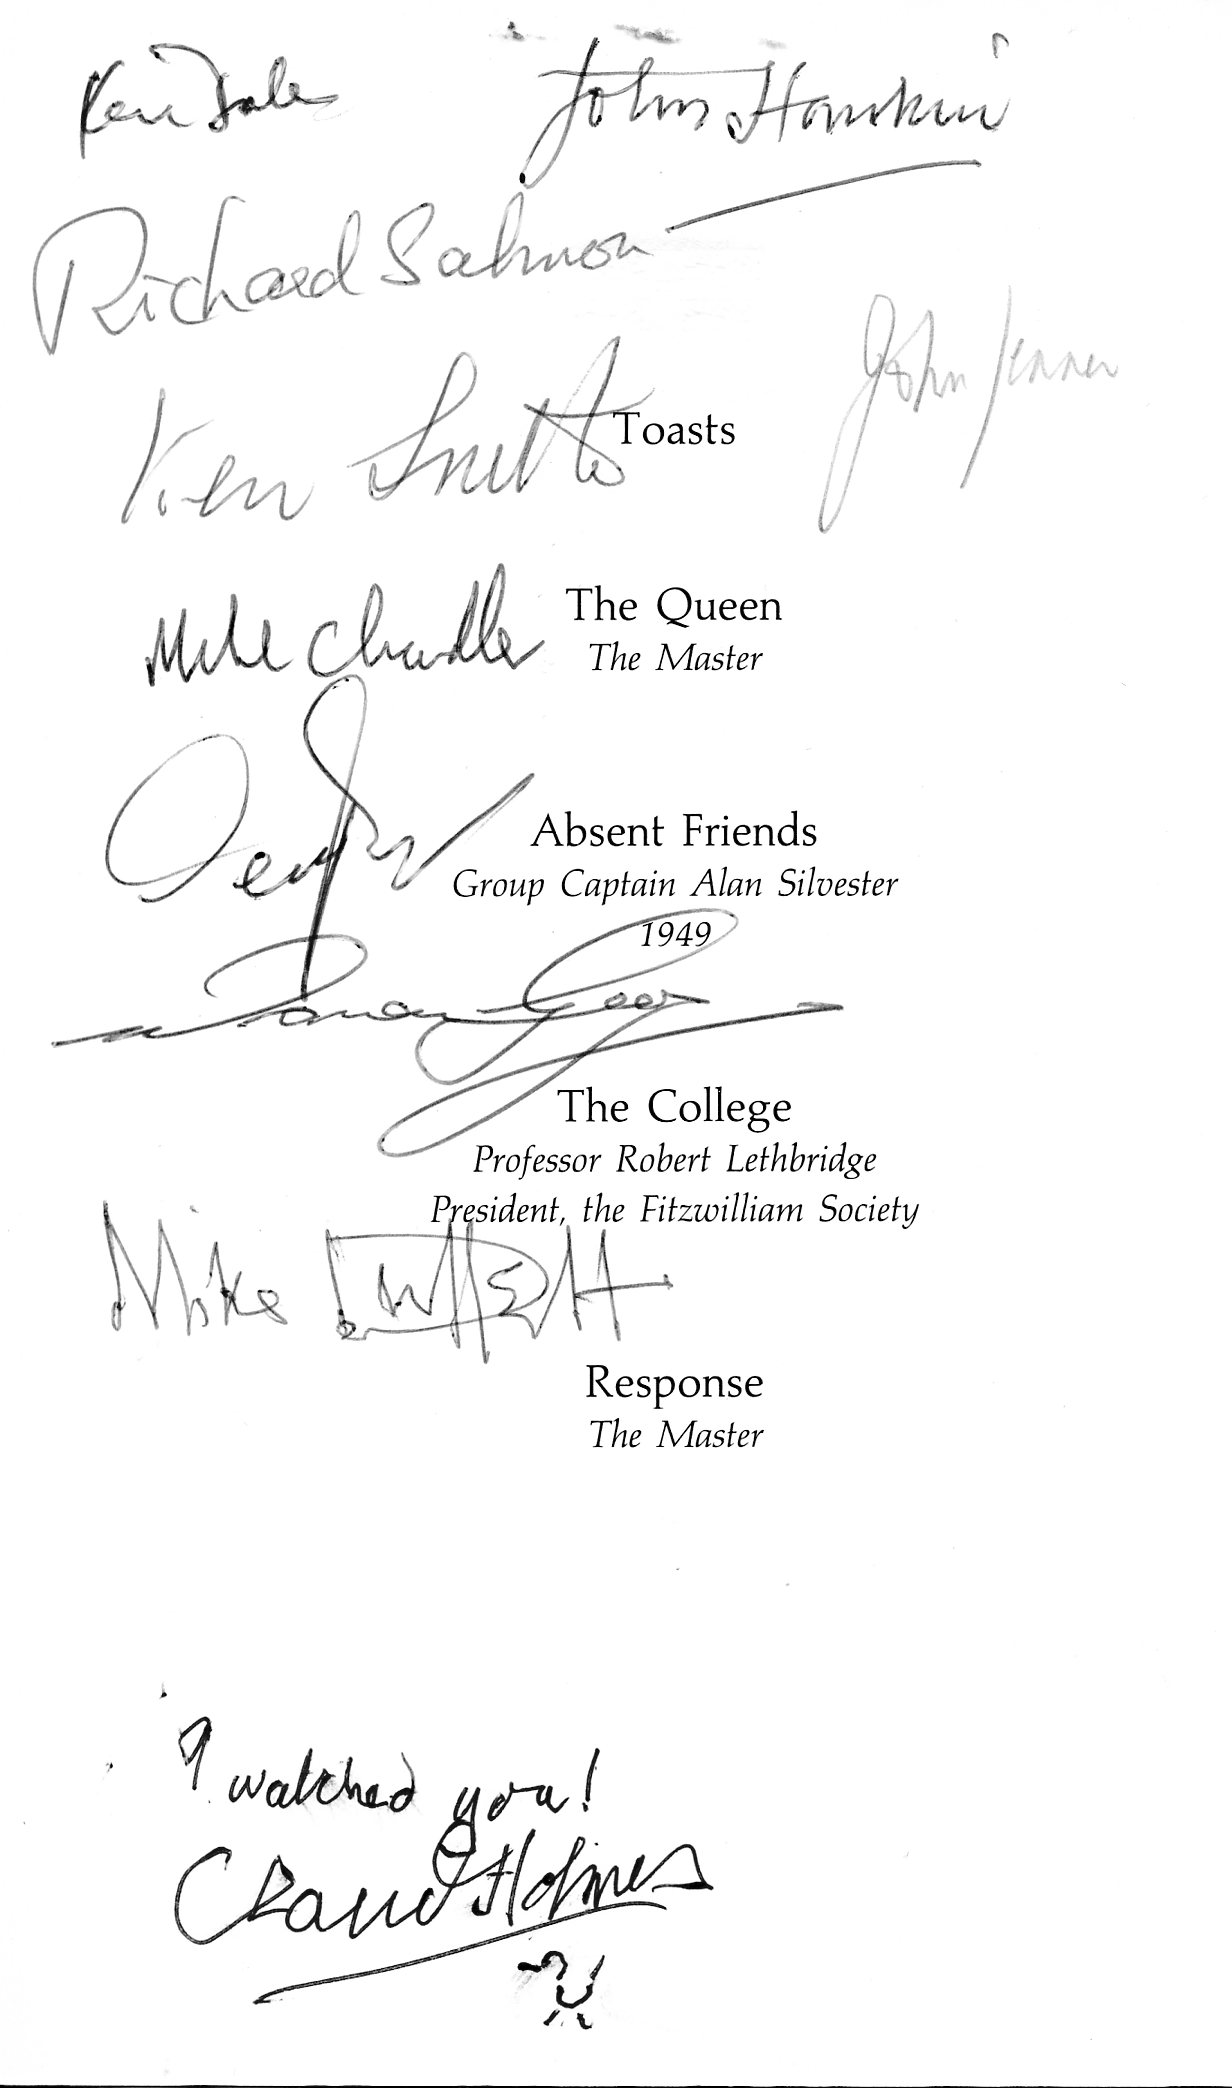 Ken Sale
John Hawskin
Richard Salmon
John Jenner
Ken Smith
Toasts
The Queen
The Master
Mike Chandler
Absent Friends
Group Captain Alan Silvester
1949
The College
Professor Robert Lethbridge
President, the Fitzwilliam Society
Mike
Response
The Master
I watched you!
Claud Holmes